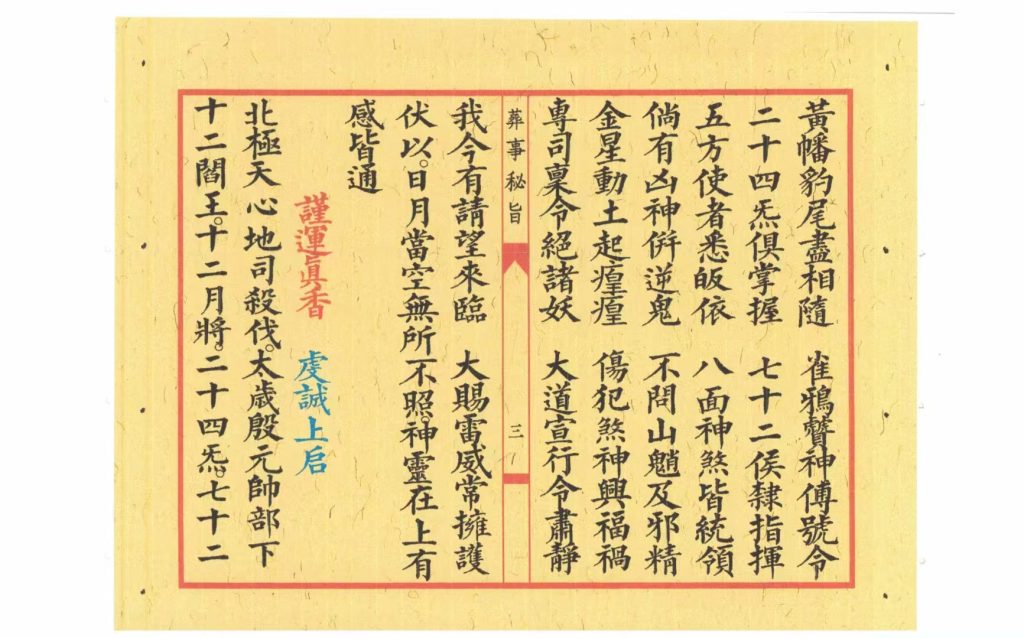 黃幡豹尾盡相隨　雀鴉聲神傅號令
二十四炁俱掌握　七十二侯隸指揮
五方使者悉皈依　八面神煞皆統領
倘有凶神併逆鬼　不問山魈及邪精
金星動土起　傷犯煞神興福禍
專司稟令絕諸妖　大道宣行令肅靜
葬事秘旨　三
我今有請望來臨　大賜雷威常擁護
伏以。日月當空無所不照。神靈在上有
感皆通
謹運眞香　虔誠上启
北極天心地司殺伐。太歲殷元帥部下
十二閻王。十二月將。二十四炁。七十二